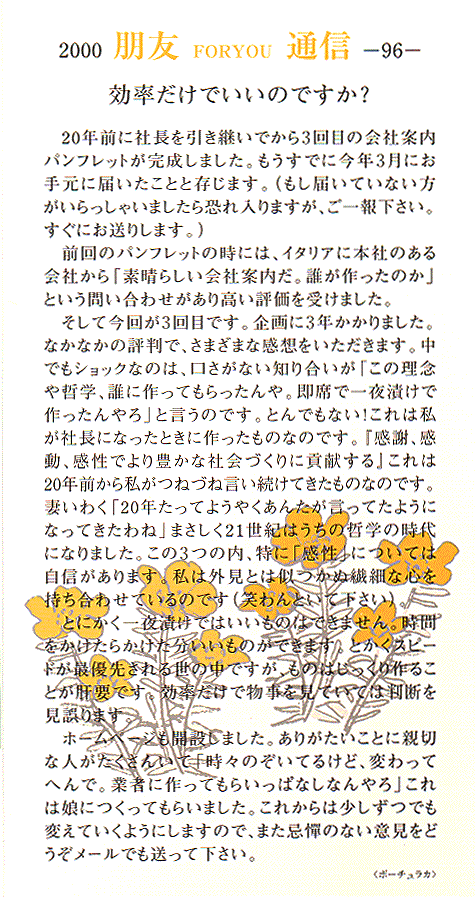 2000 朋友 FORYOU 通信 −96−
効率だけでいいのですか?
20年前に社長を引き継いでから3回目の会社案内
パンフレットが完成しました。もうすでに今年3月にお
手元に届いたことと存じます。(もし届いていない方
がいらっしゃいましたら恐れ入りますが、ご一報下さい。
すぐにお送りします。)
前回のパンフレットの時には、イタリアに本社のある
会社から「素晴らしい会社案内だ。誰が作ったのか」
という問い合わせがあり高い評価を受けました。
そして今回が3回目です。企画に3年かかりました。
なかなかの評判で、さまざまな感想をいただきます。中
でもショックなのは、口さがない知り合いが「この理念
や哲学、誰に作ってもらったんや。即席で一夜漬けで
作ったんやろ」と言うのです。とんでもない!これは私
が社長になったときに作ったものなのです。『感謝、感
動、感性でより豊かな社会づくりに貢献する』これは
20年前から私がつねづね言い続けてきたものなのです。
妻いわく「20年たってようやくあんたが言ってたように
なってきたわね」まさしく21世紀はうちの哲学の時代
になりました。この3つの内、特に「感性」については
自信があります。私は外見とは似つかぬ繊細な心を
持ち合わせているのです(笑わんといて下さい)。
とにかく一夜漬けではいいものはできません。時間
をかけたらかけた分いいものができます。とかくスピー
ドが最優先される世の中ですが、ものはじっくり作るこ
とが肝要です。効率だけで物事を見ていては判断を
見誤ります。
ホームページも開設しました。ありがたいことに親切
な人がたくさんいて「時々のぞいてるけど、変わって
へんで。業者に作ってもらいっぱなしなんやろ」これ
は娘につくってもらいました。これからは少しずつでも
変えていくようにしますので、また忌憚のない意見をど
うぞメールでも送って下さい。
〈ポーチュラカ〉